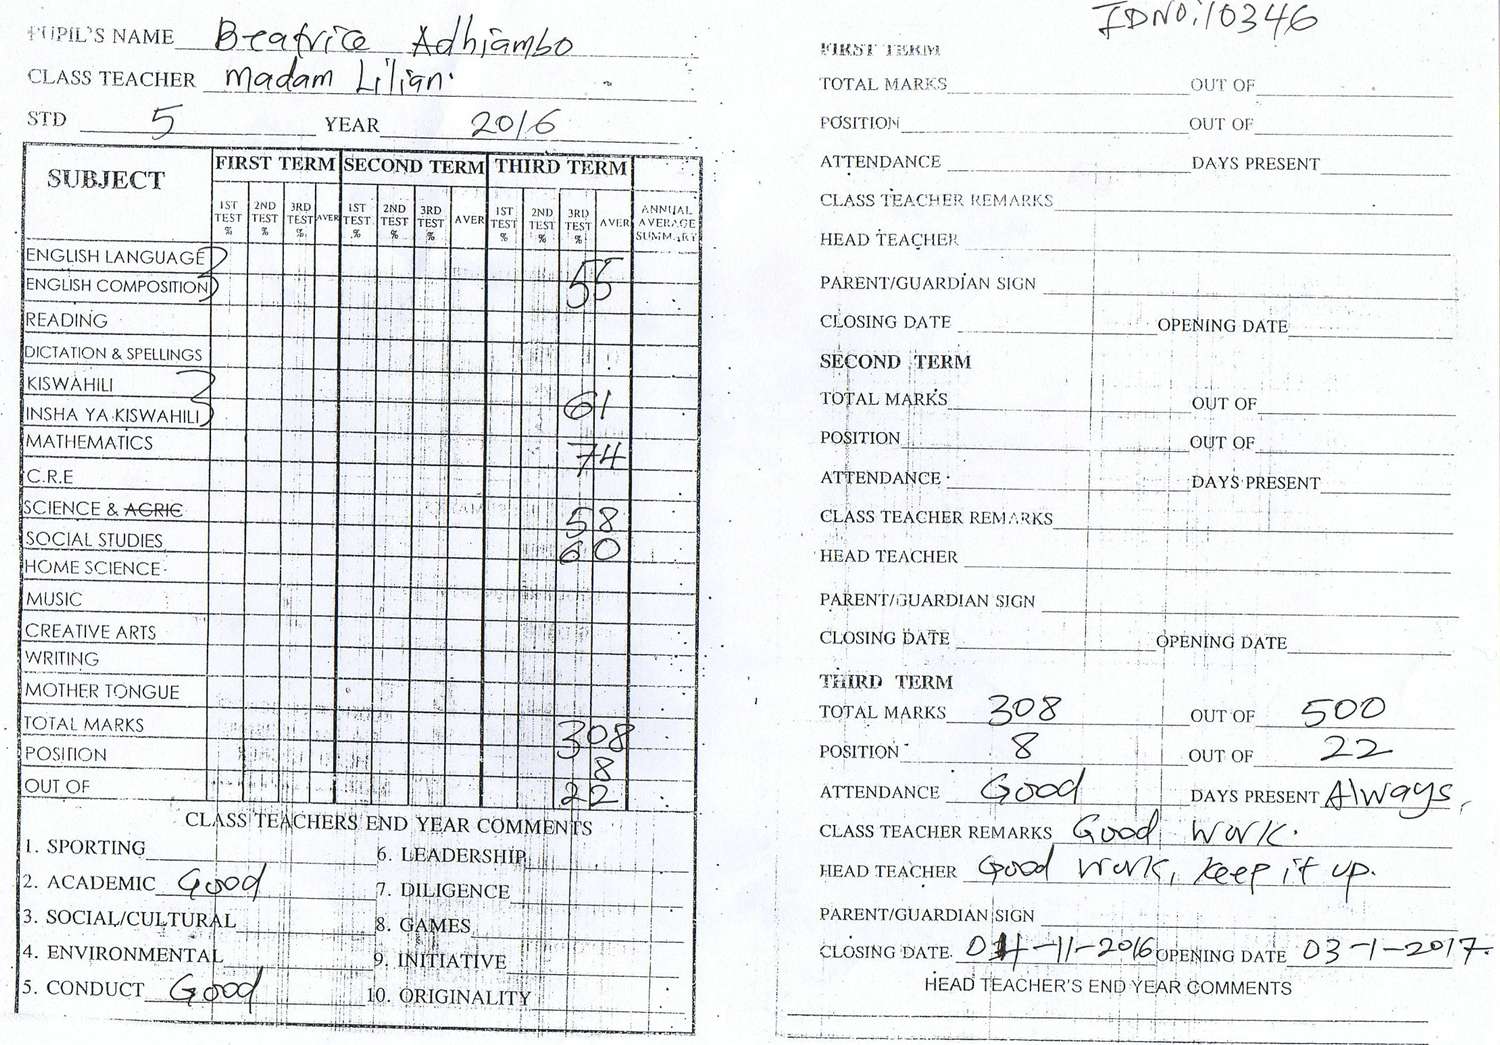 PUPIL'S NAME Beatrice Adhiambo
CLASS TEACHER Madam Lilian.
STD 5 YEAR 2016
SUBJECT FIRST TERM SECOND TERM THIRD TERM
1ST TEST % 2ND TEST % 3RD TEST % AVER 1ST TEST % 2ND TEST % 3RD TEST % AVER 1ST TEST % 2ND TEST % 3RD TEST % AVER ANNUAL AVERAGE SUMMARY
ENGLISH LANGUAGE
ENGLISH COMPOSITION 55
READING
DICTATION & SPELLINGS
KISWAHILI
INSHA YA KISWAHILI 61
MATHEMATICS 74
C.R.E
SCIENCE & AGRIC 58
SOCIAL STUDIES 60
HOME SCIENCE
MUSIC
CREATIVE ARTS
WRITING
MOTHER TONGUE
TOTAL MARKS 308
POSITION 8
OUT OF 22
CLASS TEACHERS END YEAR COMMENTS
1. SPORTING 6. LEADERSHIP
2. ACADEMIC Good 7. DILIGENCE
3. SOCIAL/CULTURAL 8. GAMES
4. ENVIRONMENTAL 9. INITIATIVE
5. CONDUCT Good 10. ORIGINALITY
IDNO: 10346
FIRST TERM
TOTAL MARKS OUT OF
POSITION OUT OF
ATTENDANCE DAYS PRESENT
CLASS TEACHER REMARKS
HEAD TEACHER
PARENT/GUARDIAN SIGN
CLOSING DATE OPENING DATE
SECOND TERM
TOTAL MARKS OUT OF
POSITION OUT OF
ATTENDANCE DAYS PRESENT
CLASS TEACHER REMARKS
HEAD TEACHER
PARENT/GUARDIAN SIGN
CLOSING DATE OPENING DATE
THIRD TERM
TOTAL MARKS 308 OUT OF 500
POSITION 8 OUT OF 22
ATTENDANCE Good DAYS PRESENT Always,
CLASS TEACHER REMARKS Good work.
HEAD TEACHER Good work, keep it up.
PARENT/GUARDIAN SIGN
CLOSING DATE. 04-11-2016 OPENING DATE 03-1-2017.
HEAD TEACHER'S END YEAR COMMENTS